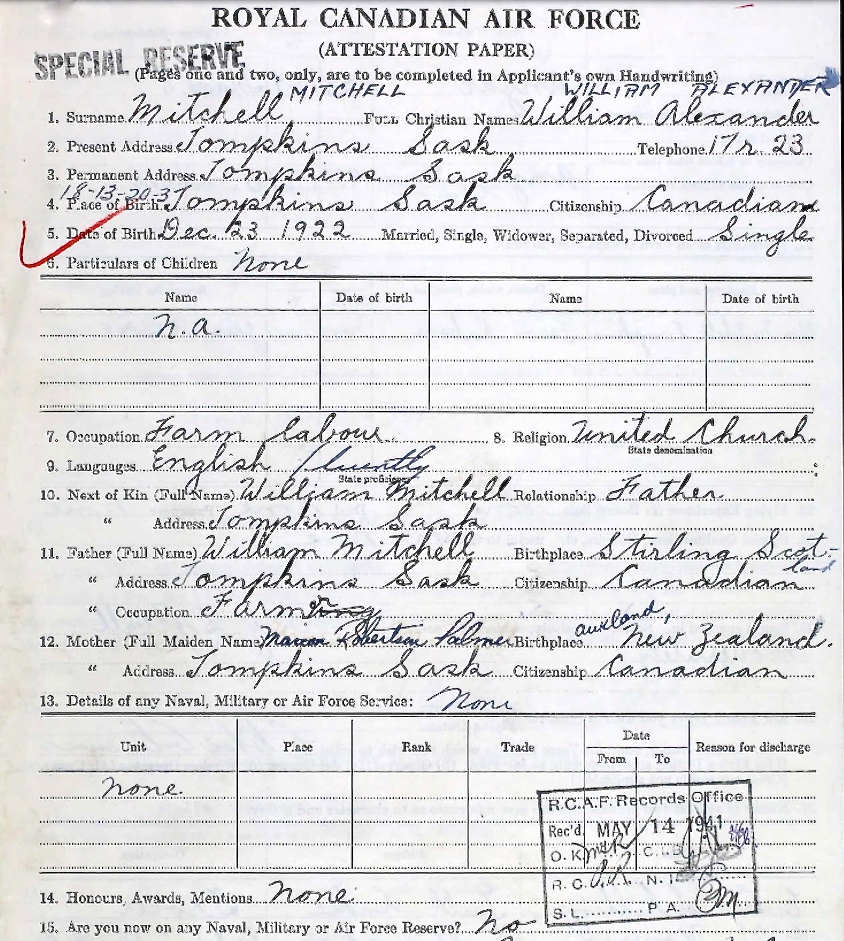 ROYAL CANADIAN AIR FORCE
(ATTESTATION PAPER)
SPECIAL RESERVE
(Pages one and two, only, are to be completed in Applicant's own Handwriting)
MITCHELL WILLIAM ALEXANDER
1. Surname Mitchell Full Christian Names William Alexander
2. Present Address Tompkins Sask Telephone 17 r. 23
3. Permanent Address Tompkins Sask
18-13-20-3
4. Place of Birth Tompkins Sask Citizenship Canadian
5. Date of Birth Dec. 23 1922 Married, Single, Widower, Separated, Divorced Single
6. Particulars of Children None
Name Date of birth Name Date of birth
N.a.
7. Occupation Farm labour 8. Religion United Church.
State denomination
9. Languages English fluently
State proficiency
10. Next of Kin (Full Name) William Mitchell Relationship Father
" Address Tompkins Sask
11. Father (Full Name) William Mitchell Birthplace Stirling Scotland
" Address Tompkins Sask Citizenship Canadian
" Occupation Farmer
12. Mother (Full Maiden Name) Robertson Palmer Birthplace auxland, New Zealand.
" Address Tompkins Sask Citizenship Canadian
13. Details of any Naval, Military or Air Force Service: None
Unit Place Rank Trade Date Reason for discharge
From To
None
R.C.A.F. Records Office
Rec'd. MAY 14 1941
O.K. C.I.B.
R.C. N.I.
S.L. P.A.
14. Honours, Awards, Mentions None
15. Are you now on any Naval, Military or Air Force Reserve? No